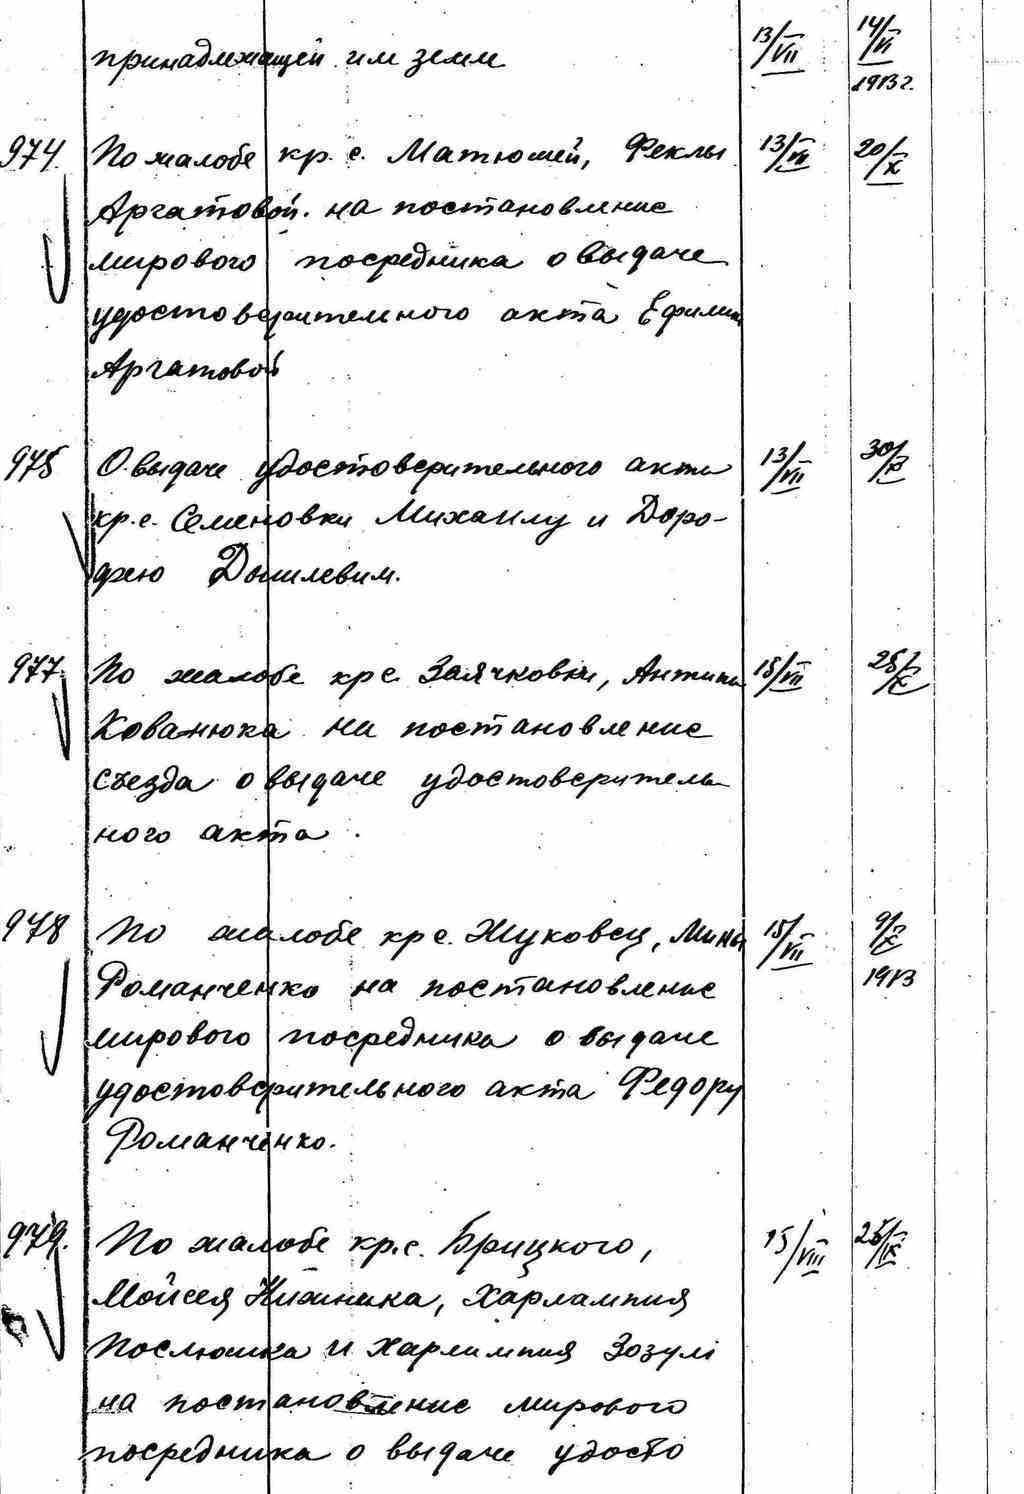 принадлежащей им земле 13/VII 14/VI
1913 г.
974. По жалобе кр. с. Матюшей, Феклы 13/VII 20/X
Аргатовой на постановление
мирового посредника о выдаче
удостоверительного акта
Аргатовой
975 О выдаче удостоверительного акта 13/VII 30/IX
кр. с. Семеновки Михаилу и Доро-
фею Данилевим.
977. По жалобе кр с. Заячковки, Антипа 15/VII
Кованюка на постановление
съезда о выдаче удостоверитель
ного акта.
978 По жалобе кр с. Жуковец, Мины 15/VII
Романченко на постановление 1913
мирового посредника о выдаче
удостоверительного акта Федору
Романченко.
979. По жалобе кр. с. Брицкого, 15/VIII 25/IX
Мойсея Нижника, Харлампия
и Харлампия Зозули
на постановление мирового
посредника о выдаче удосто